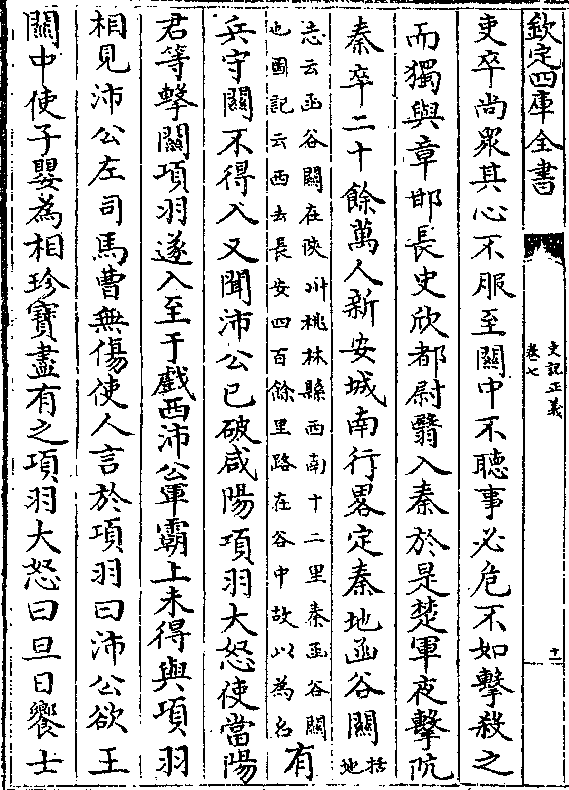 欽定四庫全書
史記正義
卷七
十一
吏卒尚衆其心不服至關中不聽事必危不如擊殺之
而獨與章邯長史欣都尉翳入秦於是楚軍夜擊阬
秦卒二十餘萬人新安城南行畧定秦地函谷關括地
志云函谷關在陜州桃林縣西南十二里秦函谷關
也圖記云西去長安四百餘里路在谷中故以為名
有
兵守關不得入又聞沛公已破咸陽項羽大怒使當陽
君等擊關項羽遂入至于戲西沛公軍霸上未得與項羽
相見沛公左司馬曹無傷使人言於項羽曰沛公欲王
關中使子嬰為相珍寶盡有之項羽大怒曰旦日饗士